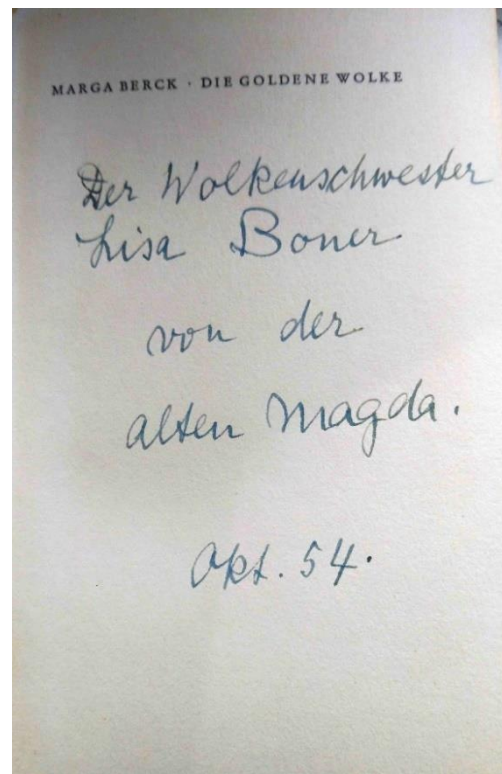 MARGA BERCK · DIE GOLDENE WOLKE
Der Wolkenschwester
Lisa Boner
von der
alten Magda.
Okt. 54.